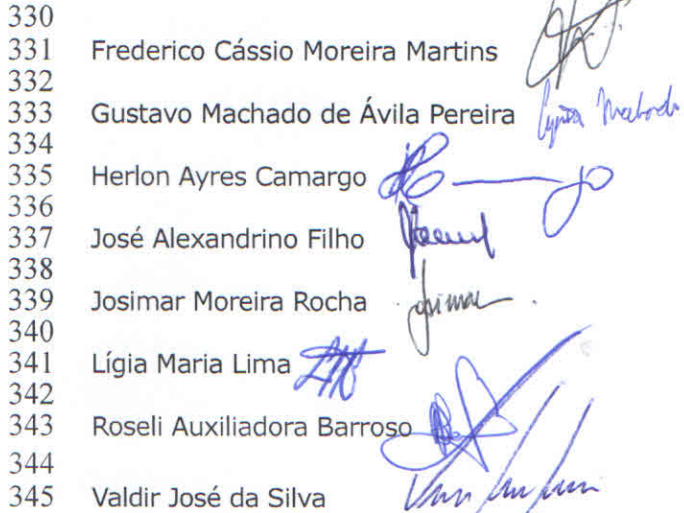 330
331 Frederico Cássio Moreira Martins
332
333 Gustavo Machado de Ávila Pereira
334
335 Herlon Ayres Camargo
336
337 José Alexandrino Filho
338
339 Josimar Moreira Rocha Josimar
340
341 Lígia Maria Lima
342
343 Roseli Auxiliadora Barroso
344
345 Valdir José da Silva